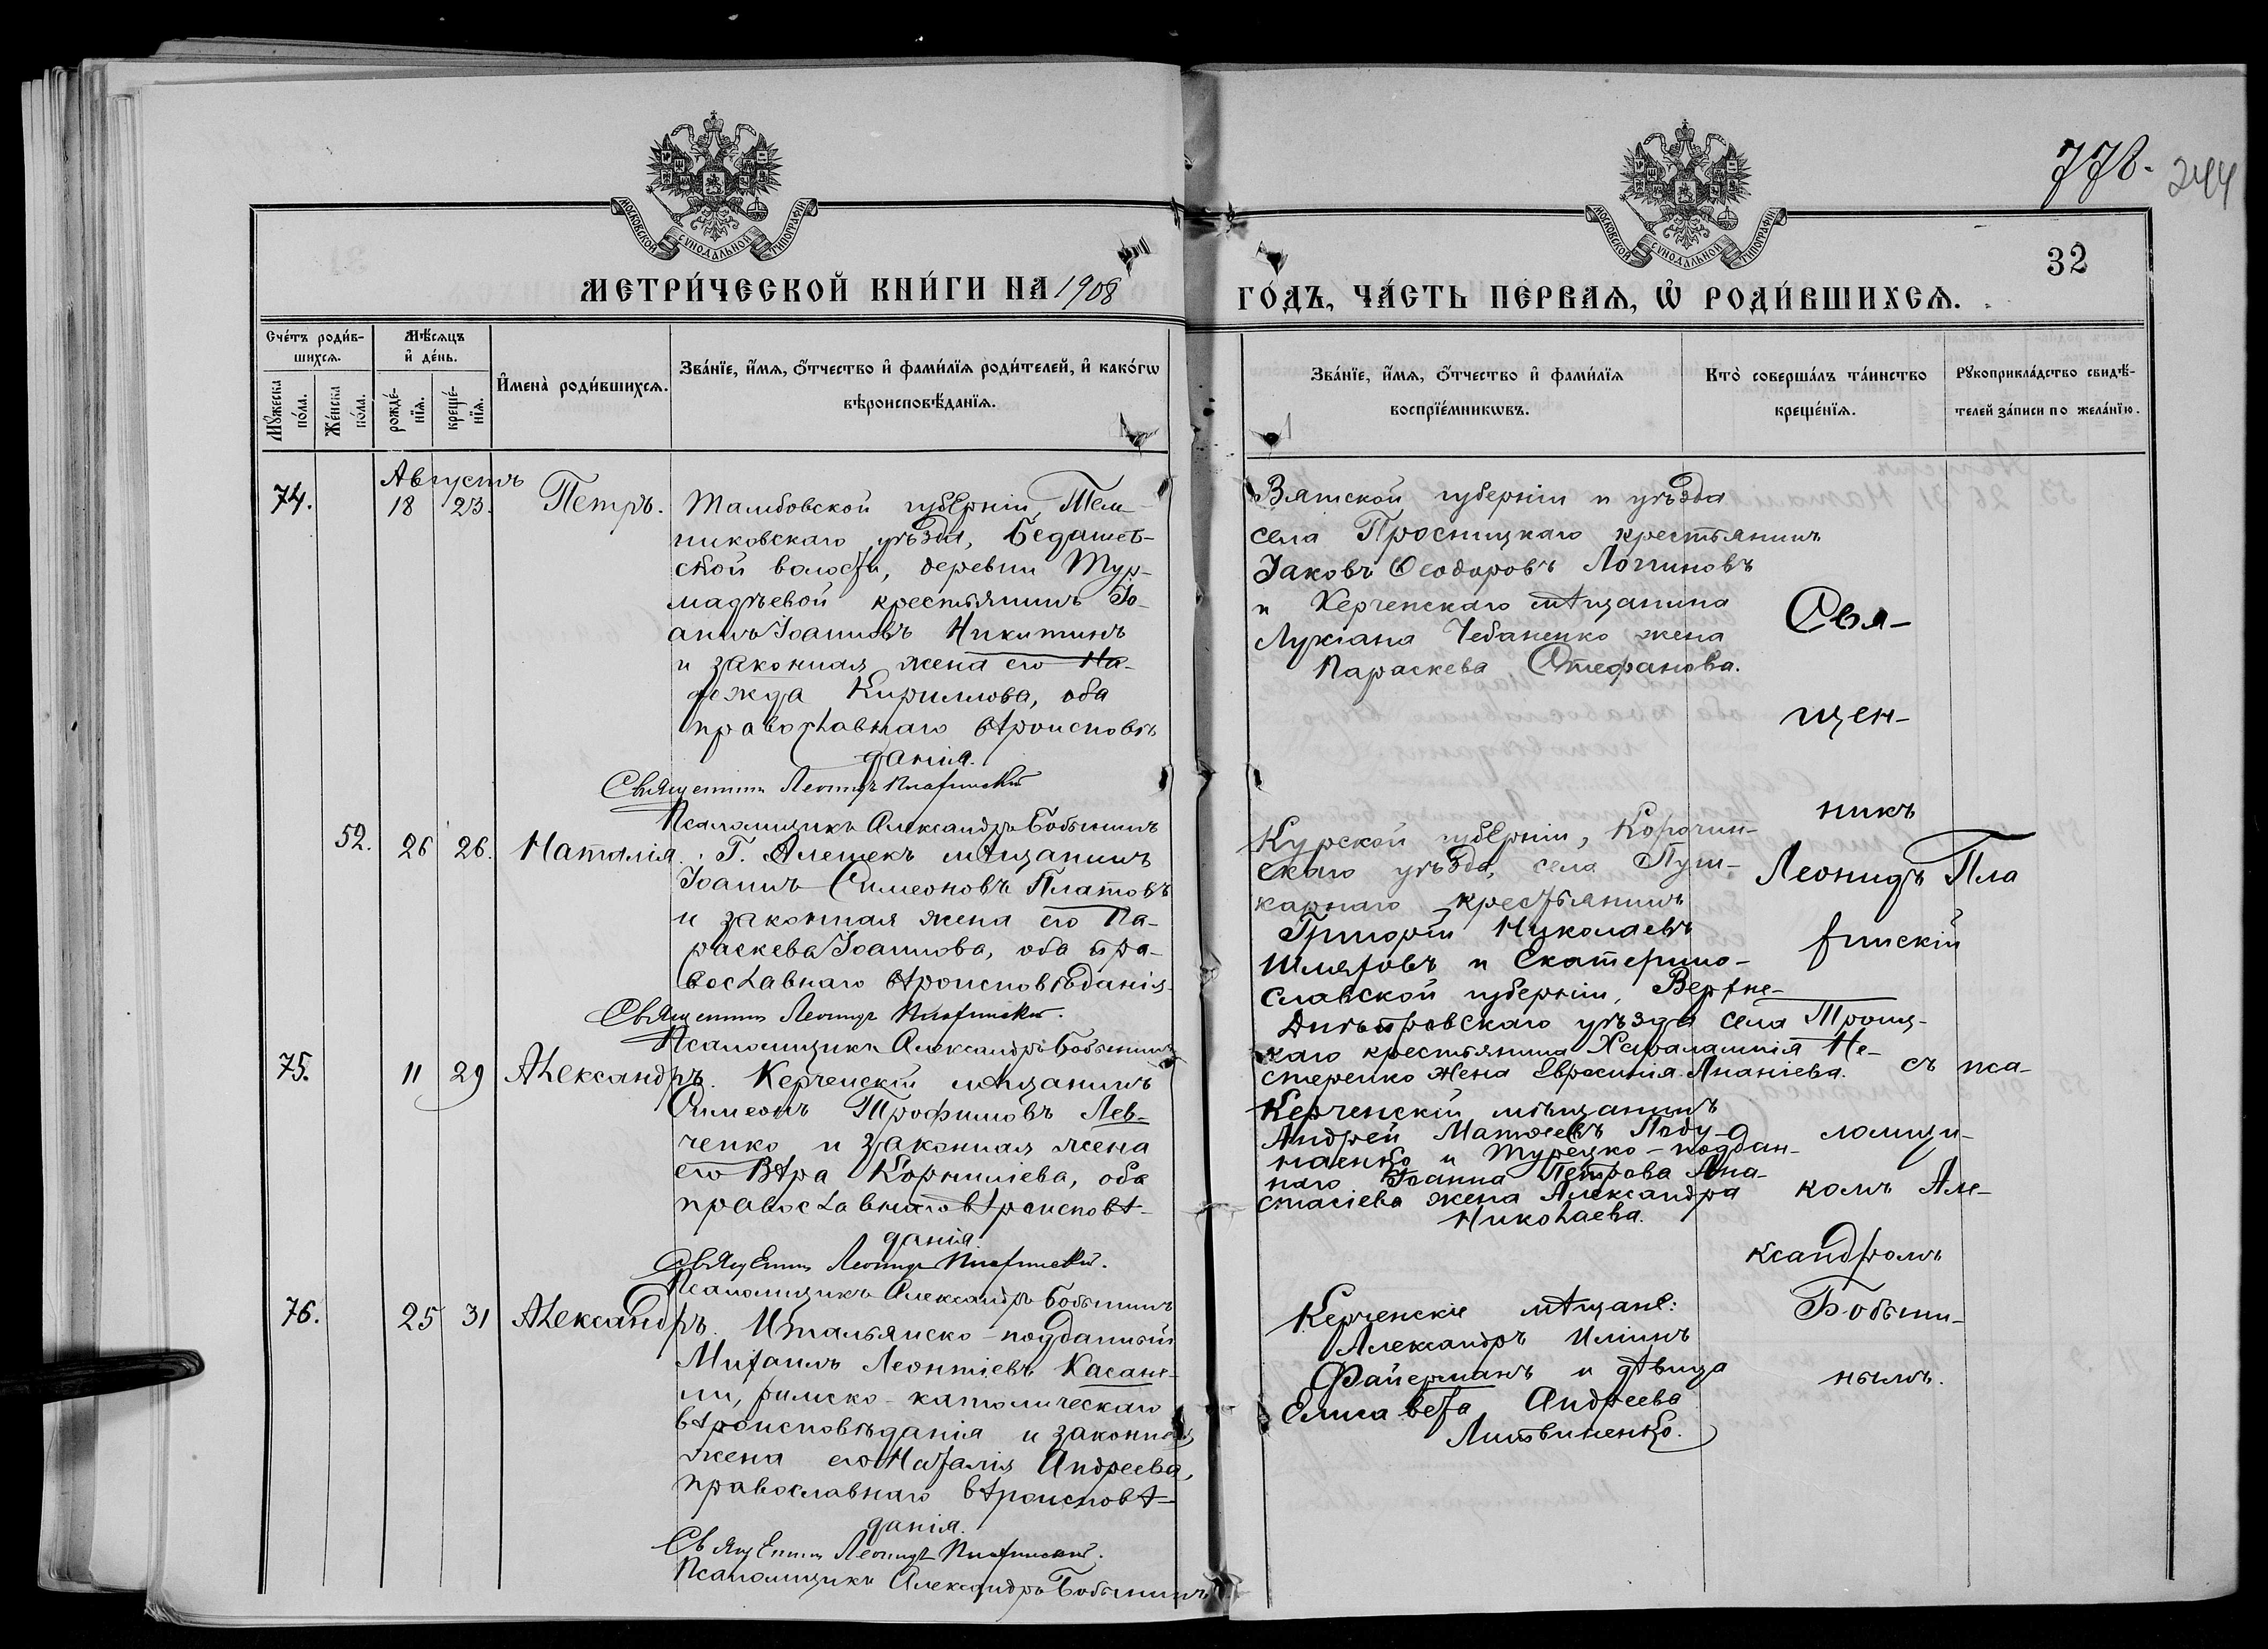 778.
244
МОСКОВСКОЙ СѴНОДАЛЬНОЙ ТИПОГРАФІИ
МОСКОВСКОЙ СѴНОДАЛЬНОЙ ТИПОГРАФІИ
32
МЕТРИ́ЧЕСКОЙ КНИ́ГИ НА 1908
ГО́ДЪ, ЧА́СТЬ ПЕ́РВАЯ, Ѡ РОДИ́ВШИХСЯ.
Сче́тъ роди́в-
шихся.
Мѣ́сяцъ
и҆ де́нь.
Мꙋ́жеска
по́ла.
Же́нска
по́ла.
рожде́-
нїя.
креще́-
нїя.
И҆мена̀ роди́вшихся.
Зва́нїе, и҆́мя, ѻ҆́тчество и҆ фами́лїя роди́телей, и҆ како́гѡ
вѣроисповѣ́данїя.
Зва́нїе, и҆́мя, ѻ҆́тчество и҆ фами́лїя
воспрїе́мникѡвъ.
Кто̀ соверша́лъ та́инство
креще́нїя.
Рꙋкоприкла́дство свидѣ́-
телей за́писи по жела́нїю.
Августъ
74.
18
23.
Петръ.
Тамбовской губерніи, Тем-
никовскаго уѣзда,
ской волости, деревни Тур-
мадѣевой крестьянинъ Іо-
аннъ Іоанновъ Никитинъ
и законная жена его На-
дежда Кириллова, оба
православнаго вѣроисповѣ
данія.
Священникъ Леонидъ Плафинскій
Псаломщикъ Александръ Бобынинъ
Вятской губерніи и уѣзда
села Просницкаго крестьянинъ
Іаковъ Ѳеодоровъ Логгиновъ
и Керченскаго мѣщанина
Лукіана Чебаненко жена
Параскева Стефанова.
52.
26
26.
Наталія.
Г. Алешекъ мѣщанинъ
Іоаннъ Симеоновъ Платовъ
и законная жена его Па-
раскева Іоаннова, оба пра-
вославнаго вѣроисповѣданія.
Священникъ Леонидъ Плафинскій.
Псаломщикъ Александръ Бобынинъ
Курской губерніи, Корочин-
скаго уѣзда, села Пуш-
карнаго крестьянинъ
Григорій Николаевъ
Шляховъ и Екатерино-
славской губерніи, Верхне-
Днѣпровскаго уѣзда села Троиц-
каго крестьянина Харалампія Не-
стеренко жена Евросинія Ананіева.
75.
11
29
Александръ.
Керченскій мѣщанинъ
Симеонъ Трофимовъ Лев-
ченко и законная жена
его Вѣра Корниліева, оба
православнаго вѣроисповѣ-
данія.
Священникъ Леонидъ Плафинскій.
Псаломщикъ Александръ Бобынинъ
Керченскій мѣщанинъ
Андрей Матѳеевъ
и Турецко-поддан-
наго Іоанна Петрова Ана-
стасіева жена Александра
Николаева.
76.
25
31
Александръ.
Итальянско-подданный
Михаилъ Леонтіевъ Касане-
ли, римско-католическаго
вѣроисповѣданія и законная
жена его Наталія Андреева,
православнаго вѣроисповѣ-
данія.
Священникъ Леонидъ Плафинскій.
Псаломщикъ Александръ Бобынинъ
Керченскіе мѣщане:
Александръ Иліинъ
Файерманъ и дѣвица
Елисавета Андреева
Литвиненко.
Свя-
щен-
никъ
Леонидъ Пла
финскій
съ пса-
ломщи-
комъ Але-
ксандромъ
Бобыни-
нымъ.